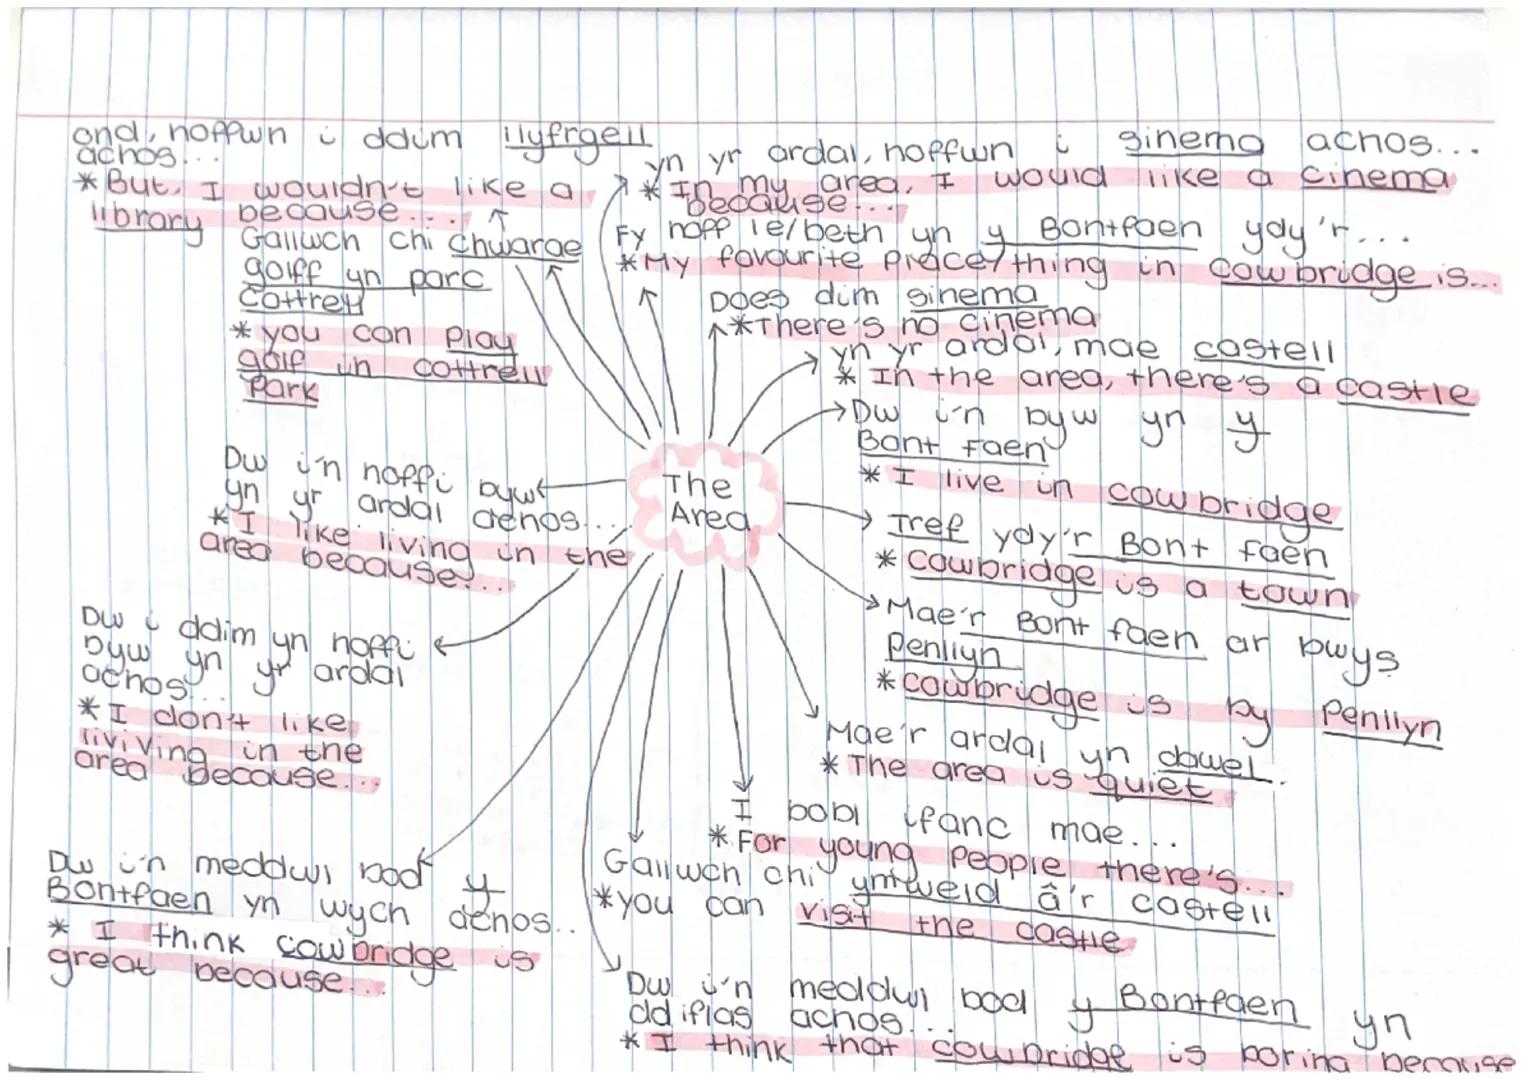 ond, hoffwn i ddim llyfrgell
achos...
* But, I wouldn't like a
library because...
yn yr ardal, hoffwn i sinema achos...
* In my area, I would like a cinema
because...
Gallwch chi chwarae
golff yn parc
Cottrell
* you can play
golf in cottrell
Park
Fy hoff le/beth yn y Bontfaen ydy'r...
* My favourite place/thing in cowbridge is...
Does dim sinema
* There's no cinema
yn yr ardal, mae castell
* In the area, there's a castle
Dw i'n byw yn y
Bont faen
* I live in cowbridge
The
Area
Tref ydy'r Bont faen
* cowbridge is a town
Mae'r Bont faen ar bwys
Penllyn
* cowbridge is by Penllyn
Mae'r ardal yn dawel.
* The area is quiet
I bobl ifanc mae...
* For young people there's...
Gallwch chi ymweld â'r castell
* you can visit the castle
Dw i'n meddwl bod y Bontfaen yn
ddiflas achos...
* I think that cowbridge is boring because
Dw i'n hoffi byw
yn yr ardal achos...
* I like living in the
area because...
Dw i ddim yn hoffi
byw yn yr ardal
achos...
* I don't like
liviving in the
area because...
Dw i'n meddwl bod y
Bontfaen yn wych achos...
* I think cowbridge is
great because...